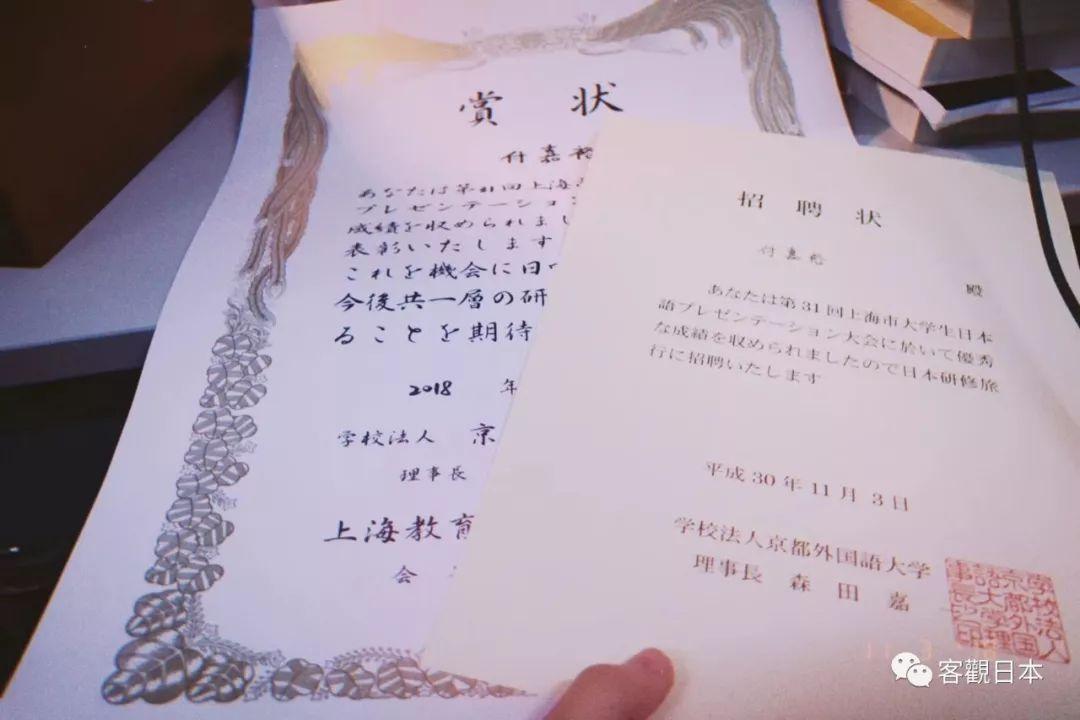 賞 状
付嘉裕
あなたは第31回上海
プレゼンテーション
成績を収められまし
表彰いたします
これを機会に日
今後共一層の研
ることを期待
2018 年
学校法人 京
理事長
上海教育
会
招聘状
付嘉裕
殿
あなたは第31回上海市大学生日本
語プレゼンテーション大会に於いて優秀
な成績を収められましたので日本研修旅
行に招聘いたします
平成30年11月 3日
学校法人京都外国語大学
理事長 森田嘉一
学校法人
京都外国
語大学理
事長之印
客觀日本